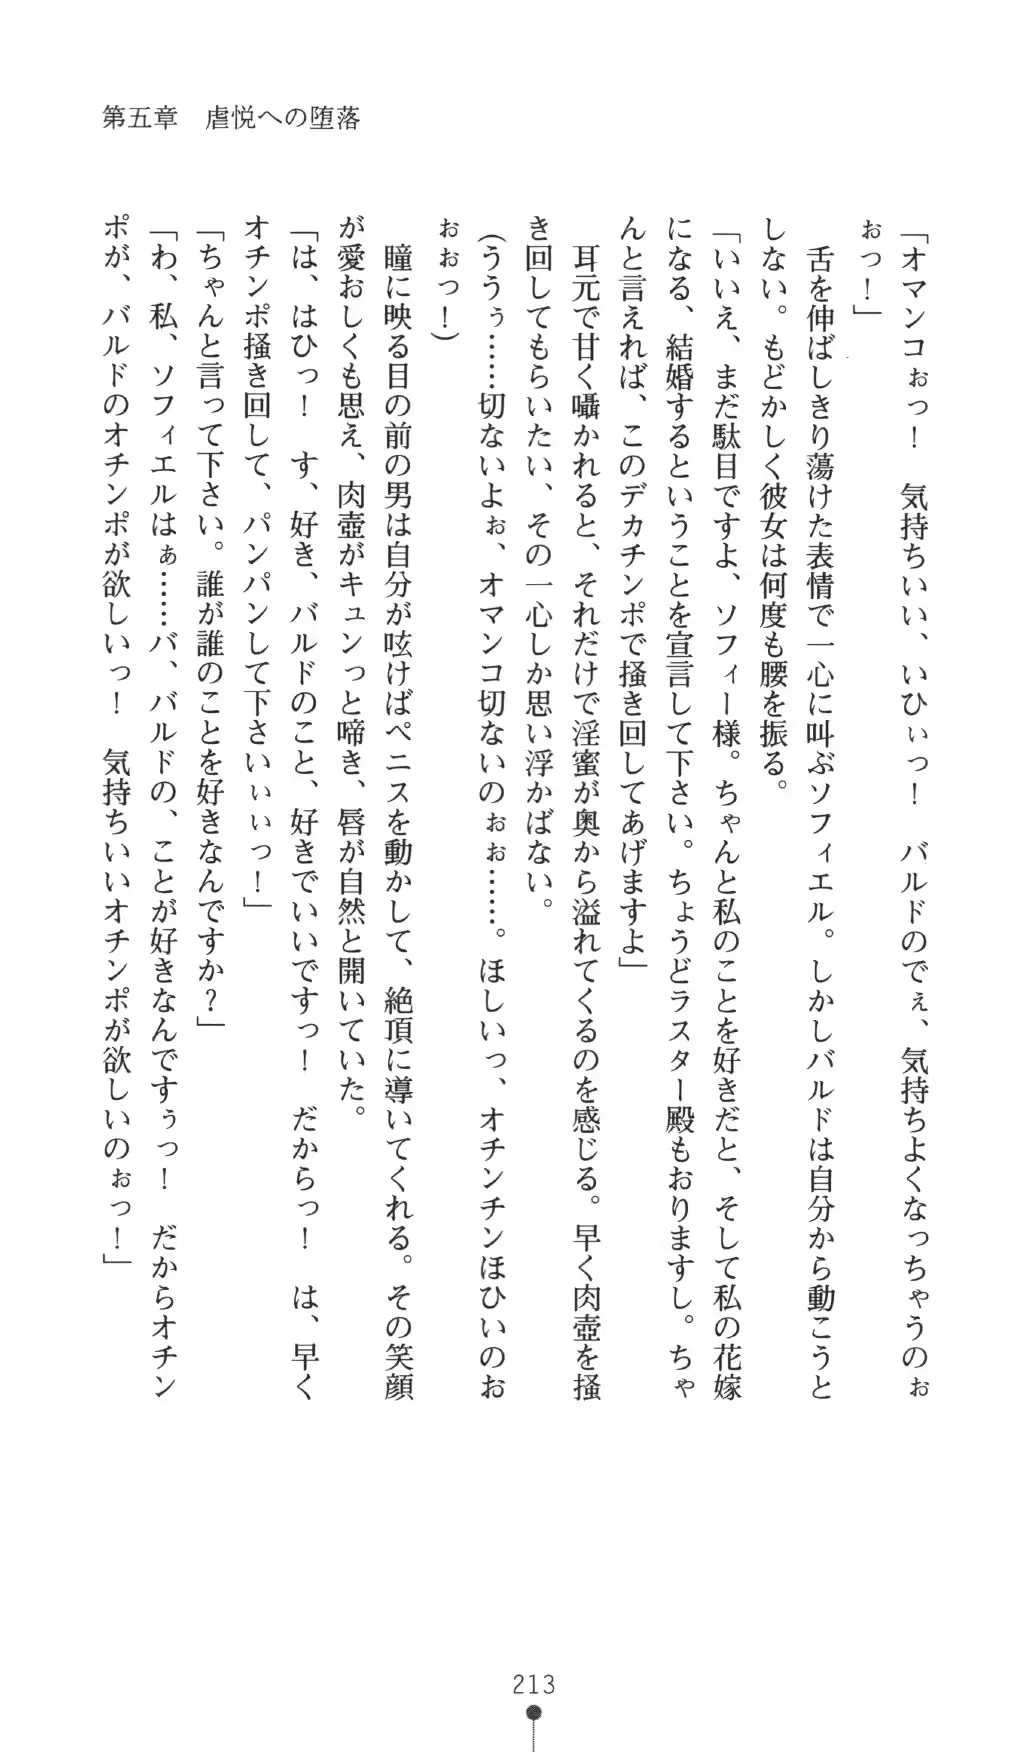 第五章　虐悦への堕落
「オマンコぉっ！　気持ちいい、いひぃっ！　バルドのでぇ、気持ちよくなっちゃうのぉ
ぉっ！」
　舌を伸ばしきり蕩けた表情で一心に叫ぶソフィエル。しかしバルドは自分から動こうと
しない。もどかしく彼女は何度も腰を振る。
「いいえ、まだ駄目ですよ、ソフィー様。ちゃんと私のことを好きだと、そして私の花嫁
になる、結婚するということを宣言して下さい。ちょうどラスター殿もおりますし。ちゃ
んと言えれば、このデカチンポで掻き回してあげますよ」
　耳元で甘く囁かれると、それだけで淫蜜が奥から溢れてくるのを感じる。早く肉壺を掻
き回してもらいたい、その一心しか思い浮かばない。
(ううぅ……切ないよぉ、オマンコ切ないのぉぉ……。ほしいっ、オチンチンほひいのお
ぉぉっ！)
　瞳に映る目の前の男は自分が呟けばペニスを動かして、絶頂に導いてくれる。その笑顔
が愛おしくも思え、肉壺がキュンっと啼き、唇が自然と開いていた。
「は、はひっ！　す、好き、バルドのこと、好きでいいですっ！　だからっ！　は、早く
オチンポ掻き回して、パンパンして下さいぃぃっ！」
「ちゃんと言って下さい。誰が誰のことを好きなんですか？」
「わ、私、ソフィエルはぁ……バ、バルドの、ことが好きなんですぅっ！　だからオチン
ポが、バルドのオチンポが欲しいっ！　気持ちいいオチンポが欲しいのぉっ！」
213